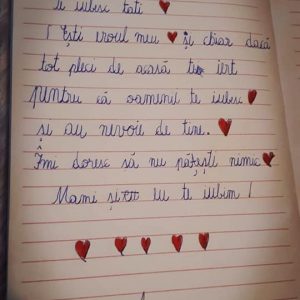 te iubesc tati
! Ești eroul meu și chiar dacă
tot pleci de acasă te iert
pentru că oamenii te iubesc
și au nevoie de tine.
Îmi doresc să nu pățești nimic
Mami și eu te iubim !